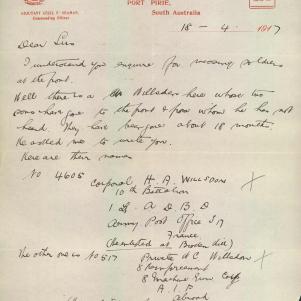 ADJUTANT
Commanding Officer
PORT PIRIE,
South Australia
18 - 4 - 1917
Dear Sirs
I understand you enquire for missing soldiers
at the front.
Well there is a Mr Willsdon here whose two
sons have gone to the front & from whom he has not
heard. They have been gone about 18 months.
He asked me to write you.
Here are their names
No 4605
Corporal H. A. Willsdon
10th Battalion
1 A D B D
Army Post Office S 17
France
(he enlisted at Broken Hill)
The other one is No 517 Private A C Willsdon
8 Reinforcement
8 Machine Gun Corp
A I F
Abroad